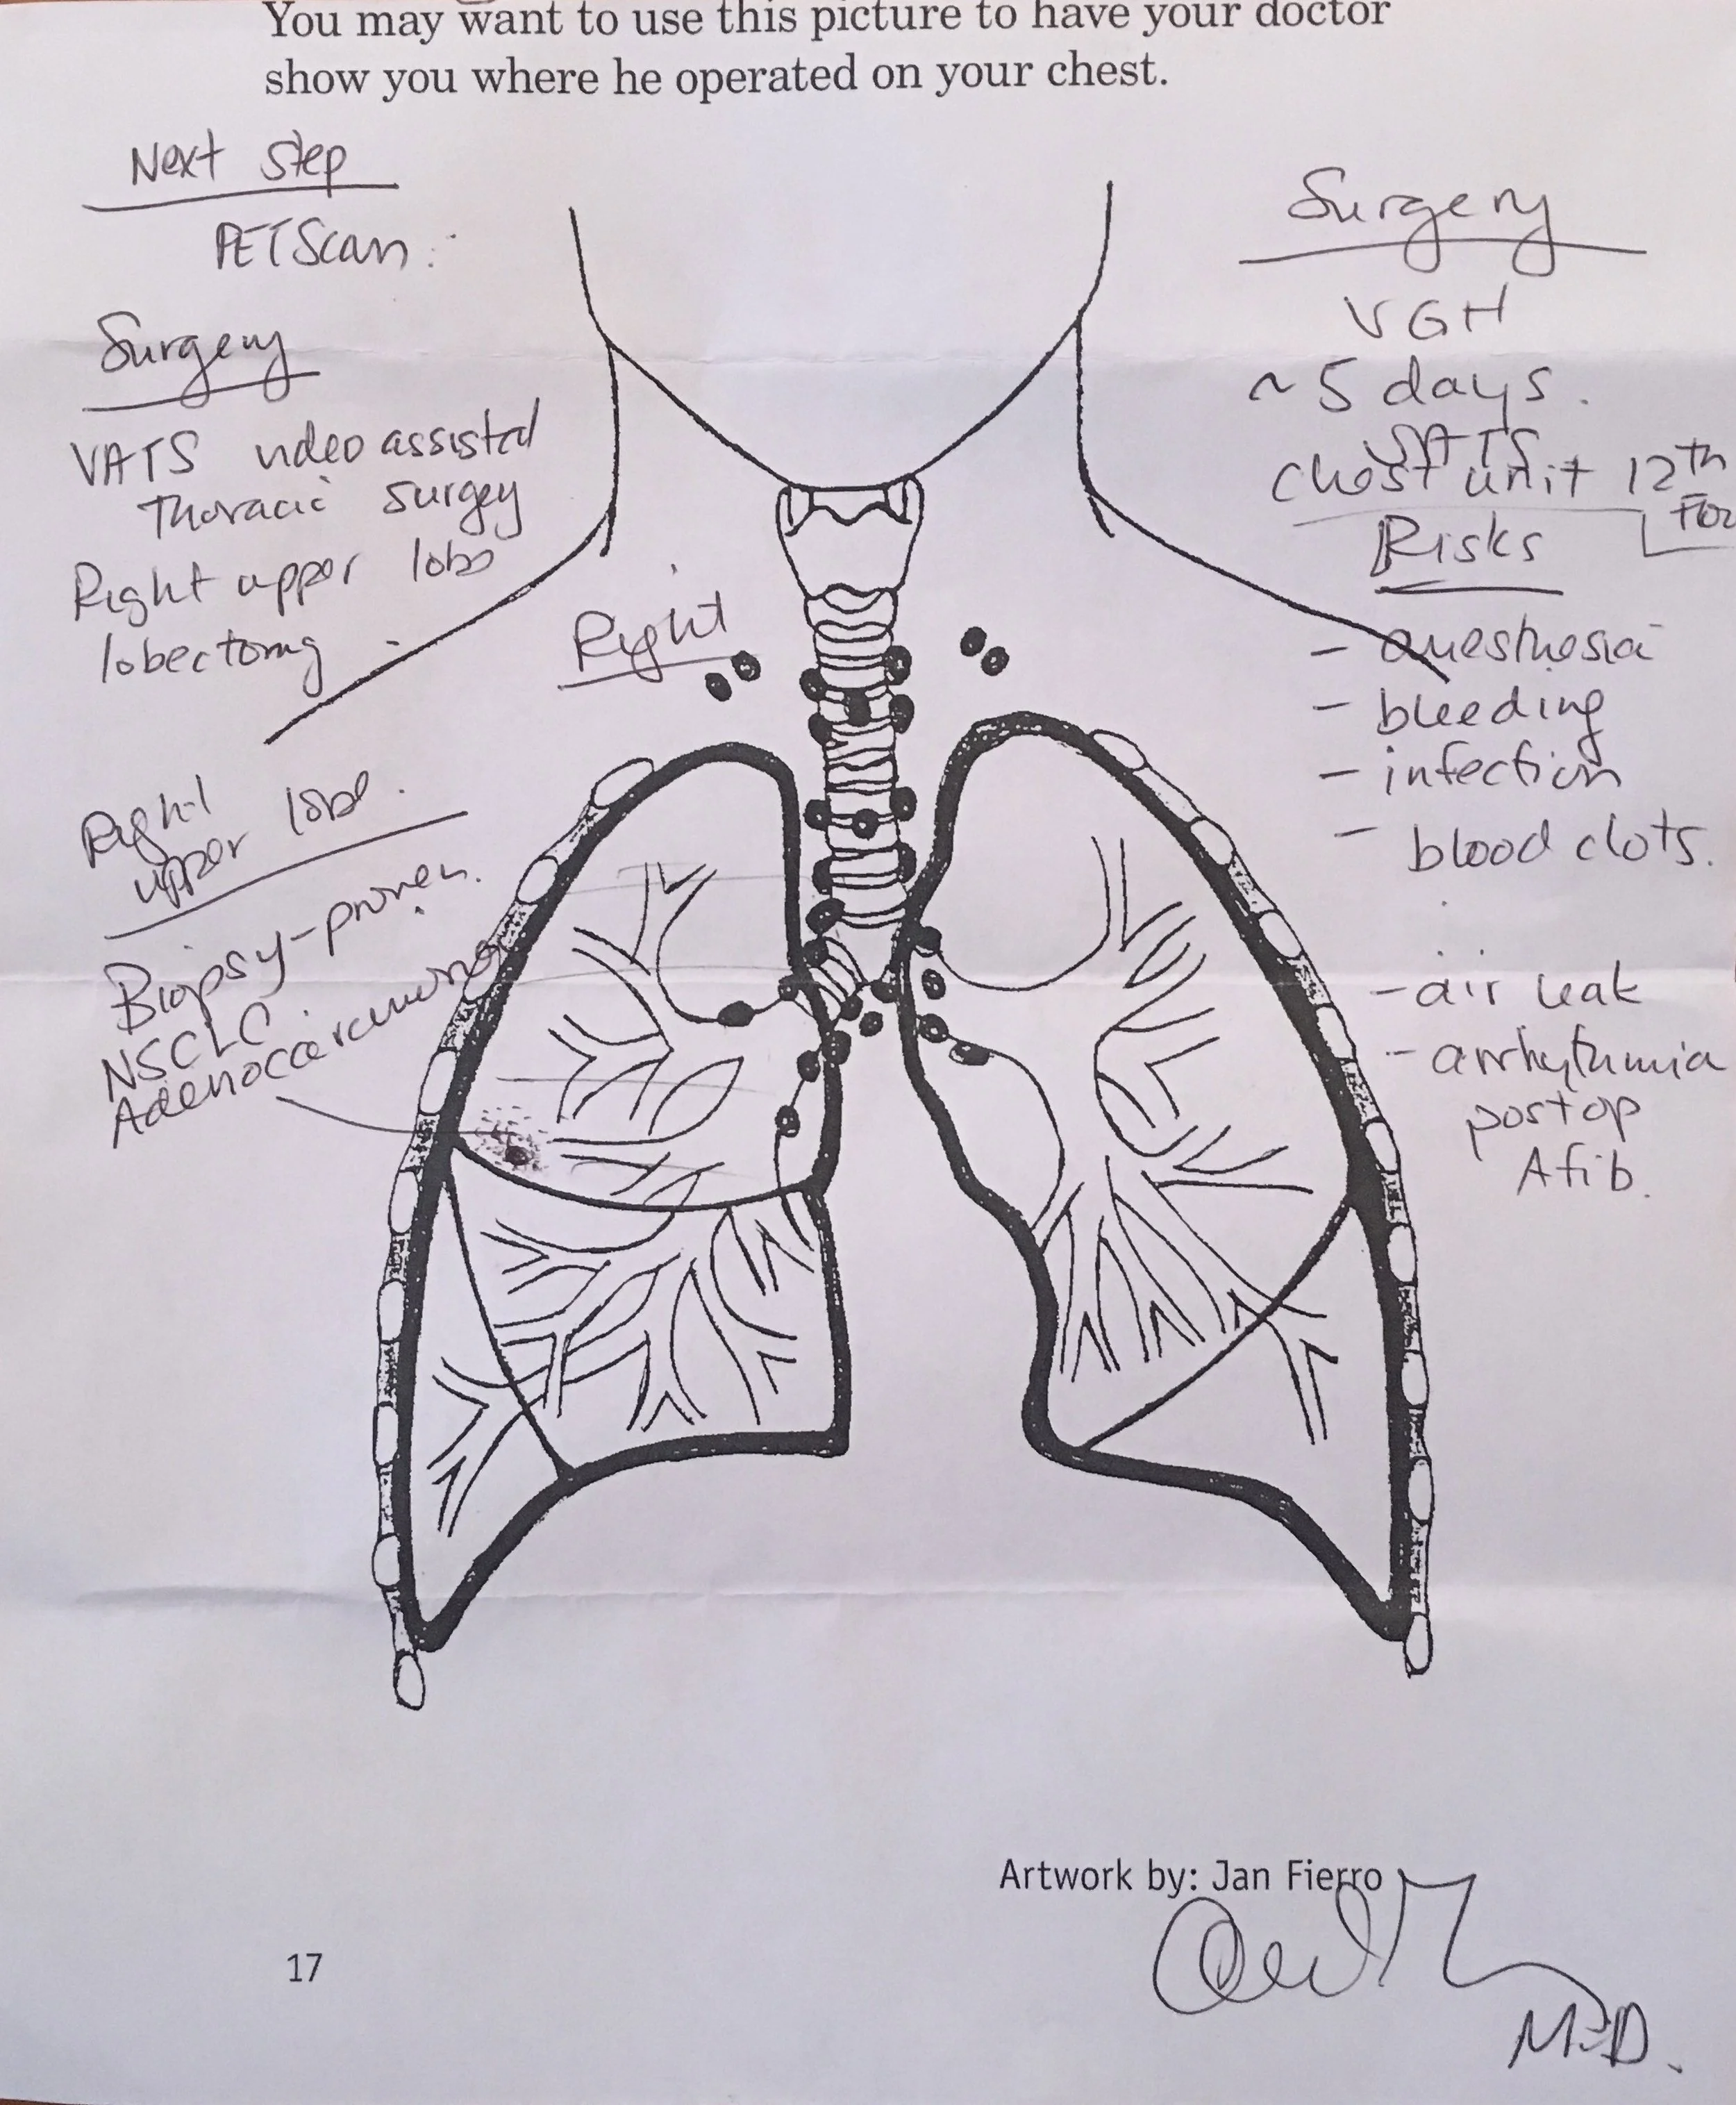 You may want to use this picture to have your doctor
show you where he operated on your chest.
Next Step
PET Scan
Surgery
VATS video assisted
Thoracic Surgey
Right upper lobe
lobectomy
Right
Right
upper lobe
Biopsy-proven
NSCLC
Adenocarcinoma
Surgery
VGH
~ 5 days.
VATS
Chest unit 12th
Risks
- anesthesia
- bleeding
- infection
- blood clots.
- air leak
- arrhythmia
postop
Afib.
Artwork by: Jan Fierro
M.D.
17